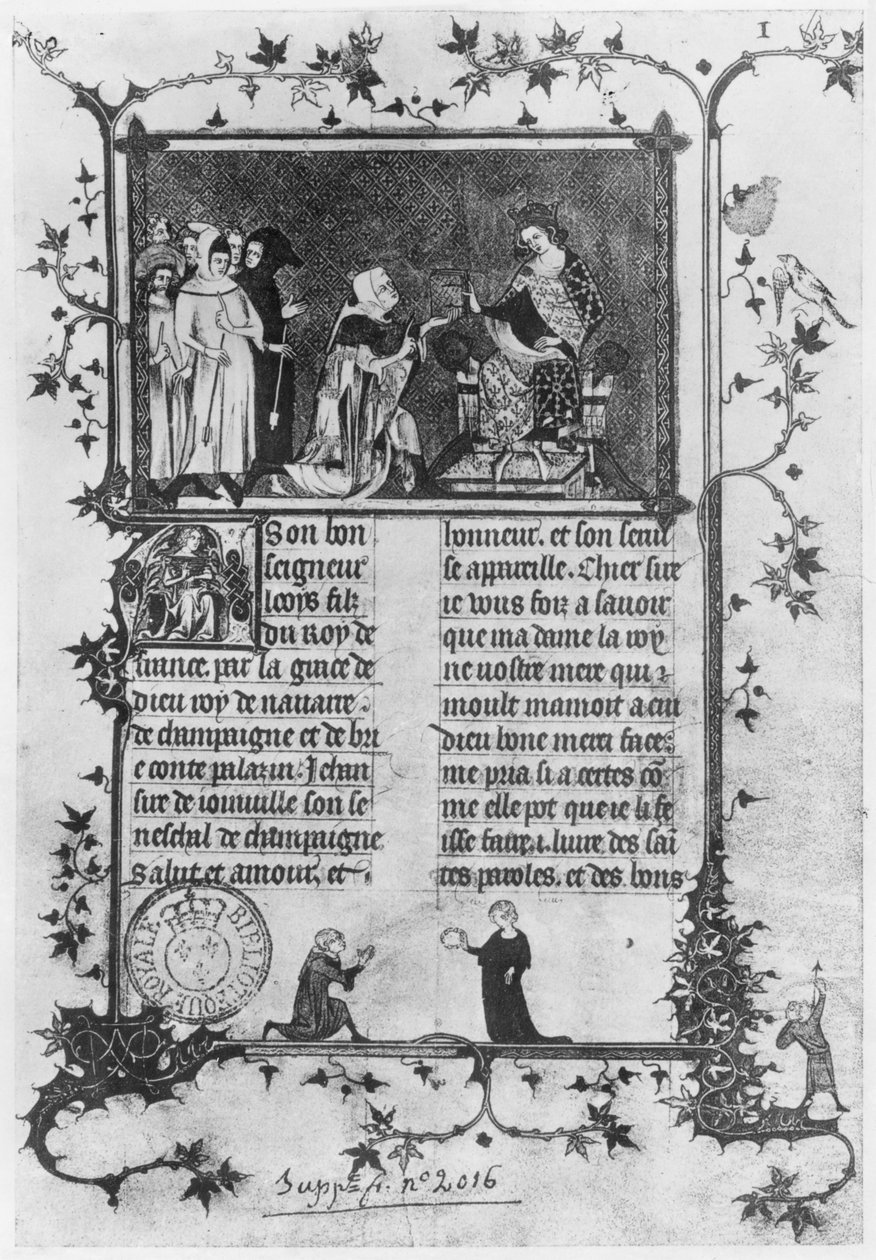 I
A Son bon
seigneur
looys filz
du Roy de
france. par la grace de
dieu roy de nauarre.
de champaigne et de bri
e conte palazin. Jehan
sire de ioinuille son se
neschal de champaigne
Salut et amour, et
honneur. et son serui
se appareille. Chier sire
ie vous foiz a sauoir
que ma dame la roy
ne uostre mere qui
moult mamoit a cui
dieu bone merci face
me pria si a certes cō
me elle pot que ie li fe
isse faire .i. liure des saī
tes paroles. et des bons
BIBLIOTHEQUE ROYALE
Supp.t fr. n° 2016